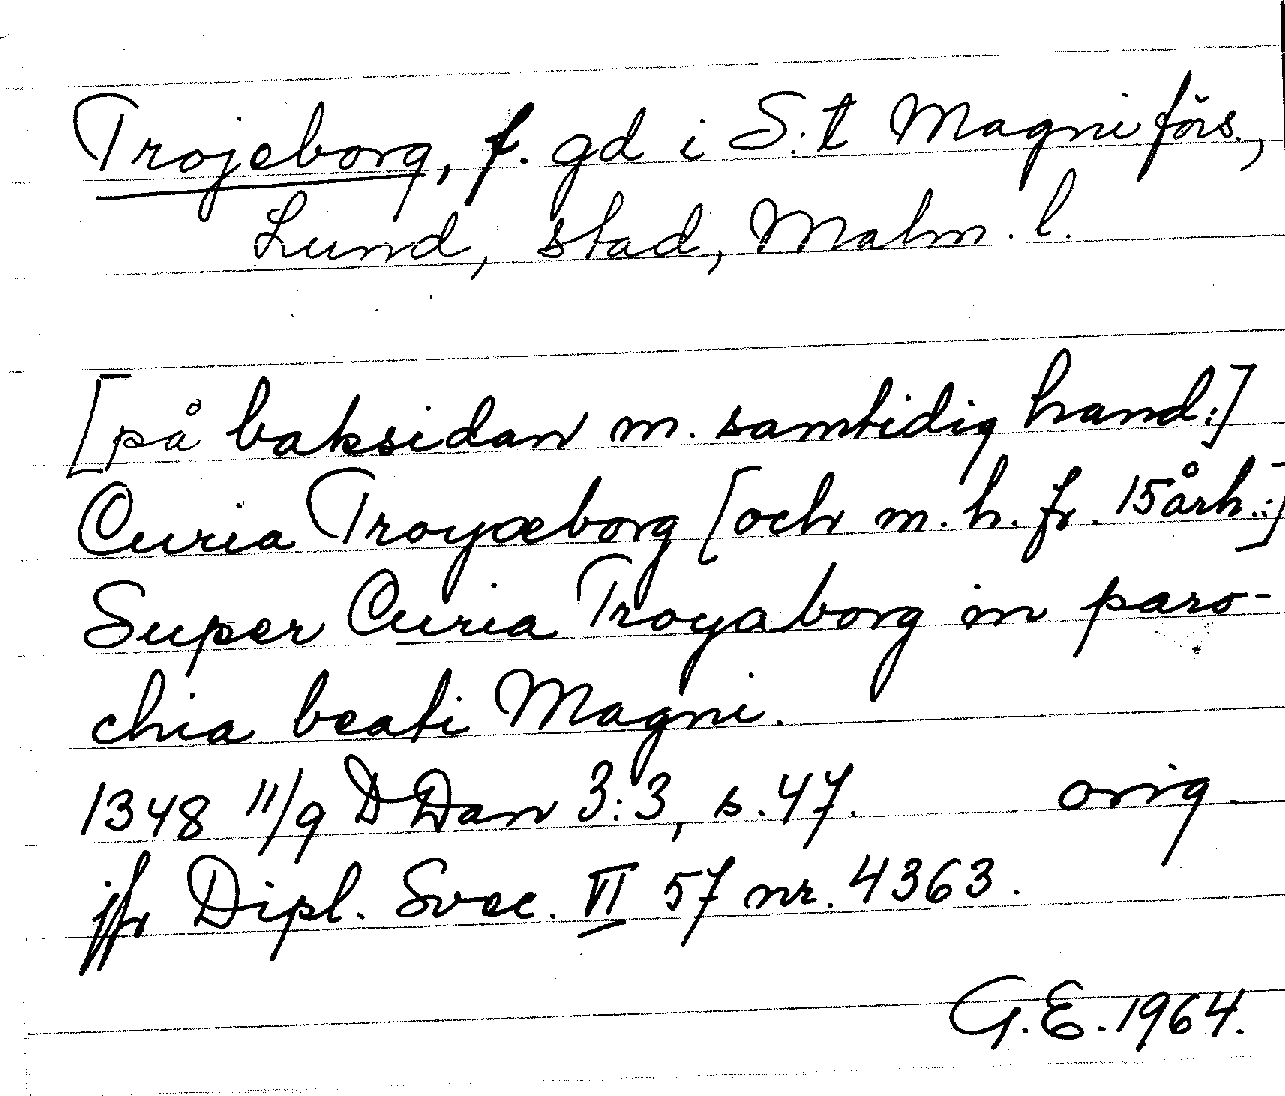 Trojeborg, f. gd i S:t Magni förs.,
Lund, stad, Malm. l.
[på baksidan m. samtidig hand:]
Curia Troyæborg [och m. h. fr. 15årh.:]
Super Curia Troyaborg in paro-
chia beati Magni.
1348 11/9 D Dan 3:3, s. 47. orig.
jfr Dipl. Svec. VI 57 nr. 4363.
G.E. 1964.